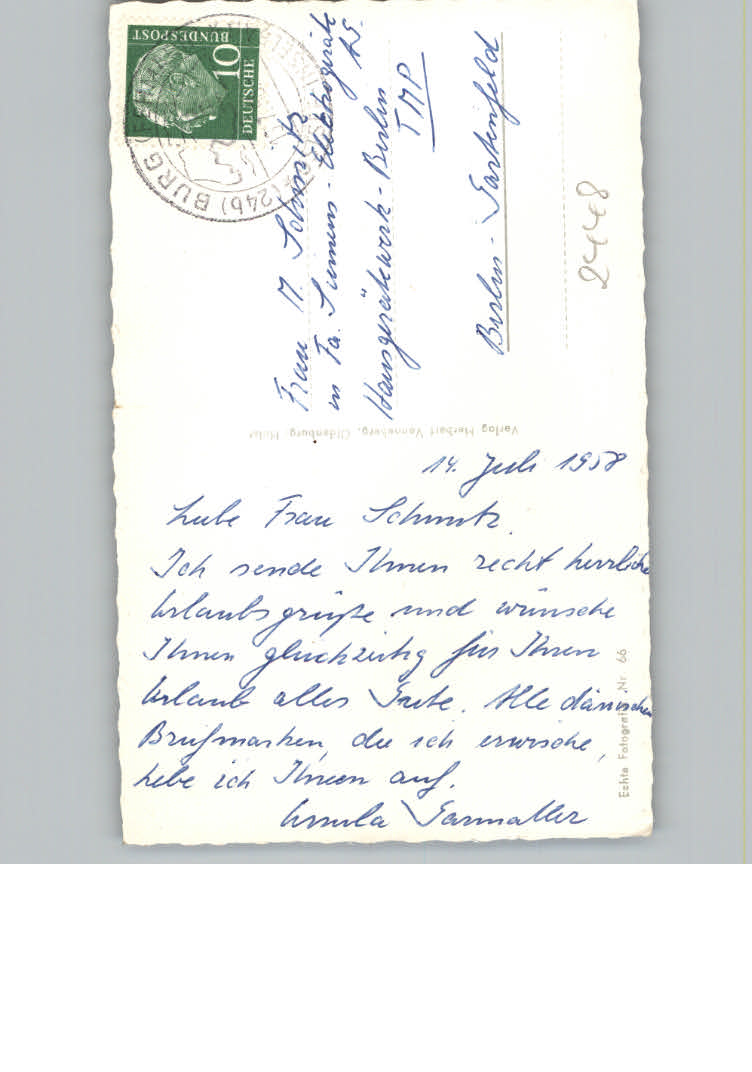 14. Juli 1958
Liebe Frau Schmitz.
Ich sende Ihnen recht herzliche
Urlaubsgrüße und wünsche
Ihnen gleichzeitig für Ihren
Urlaub alles Gute. Alle dänischen
Briefmarken, die ich erwische,
hebe ich Ihnen auf.
Ursula
Frau M. Schmitz
in Fa. Siemens-Elektrogeräte
AG.
Hausgerätewerk-Berlin
TMP
Berlin-Gartenfeld
2448
DEUTSCHE
BUNDESPOST
10
(24b) BURG
Verlag Herbert Vanneberg, Oldenburg, Holst
Echte Fotografie Nr. 66